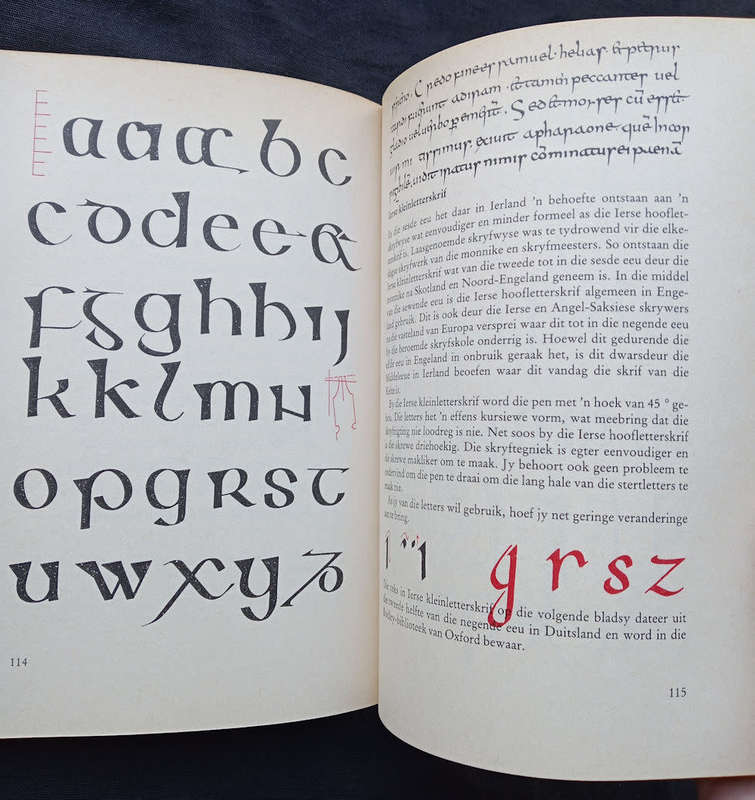 a a a b c
c o d e e &
f g g h h i j
k k l m n
o p q r s t
u w x y z
114
Credo fineer samuel. helias.
adiram. peccanter vel
Ierse kleinletterskrif
In die sesde eeu het daar in Ierland 'n behoefte ontstaan aan 'n
wat eenvoudiger en minder formeel as die Ierse hooflet-
Laasgenoemde skryfwyse was te tydrowend vir die elke-
skryfwerk van die monnike en skryfmeesters. So ontstaan die
Ierse kleinletterskrif wat van die tweede tot in die sesde eeu deur die
monnike na Skotland en Noord-Engeland geneem is. In die middel
van die sewende eeu is die Ierse hoofletterskrif algemeen in Enge-
land gebruik. Dit is ook deur die Ierse en Angel-Saksiese skrywers
na die vasteland van Europa versprei waar dit tot in die negende eeu
by die beroemde skryfskole onderrig is. Hoewel dit gedurende die
eeu in Engeland in onbruik geraak het, is dit dwarsdeur die
Middeleeue in Ierland beoefen waar dit vandag die skrif van die
is.
By die Ierse kleinletterskrif word die pen met 'n hoek van 45 ° ge-
hou. Die letters het 'n effens kursiewe vorm, wat meebring dat die
skryfrigting nie loodreg is nie. Net soos by die Ierse hoofletterskrif
is die skrewe driehoekig. Die skryftegniek is egter eenvoudiger en
die skrewe makliker om te maak. Jy behoort ook geen probleem te
ondervind om die pen te draai om die lang hale van die stertletters te
maak nie.
As jy van die letters wil gebruik, hoef jy net geringe veranderinge
aan te bring.
g r s z
Die teks in Ierse kleinletterskrif op die volgende bladsy dateer uit
die tweede helfte van die negende eeu in Duitsland en word in die
van Oxford bewaar.
115